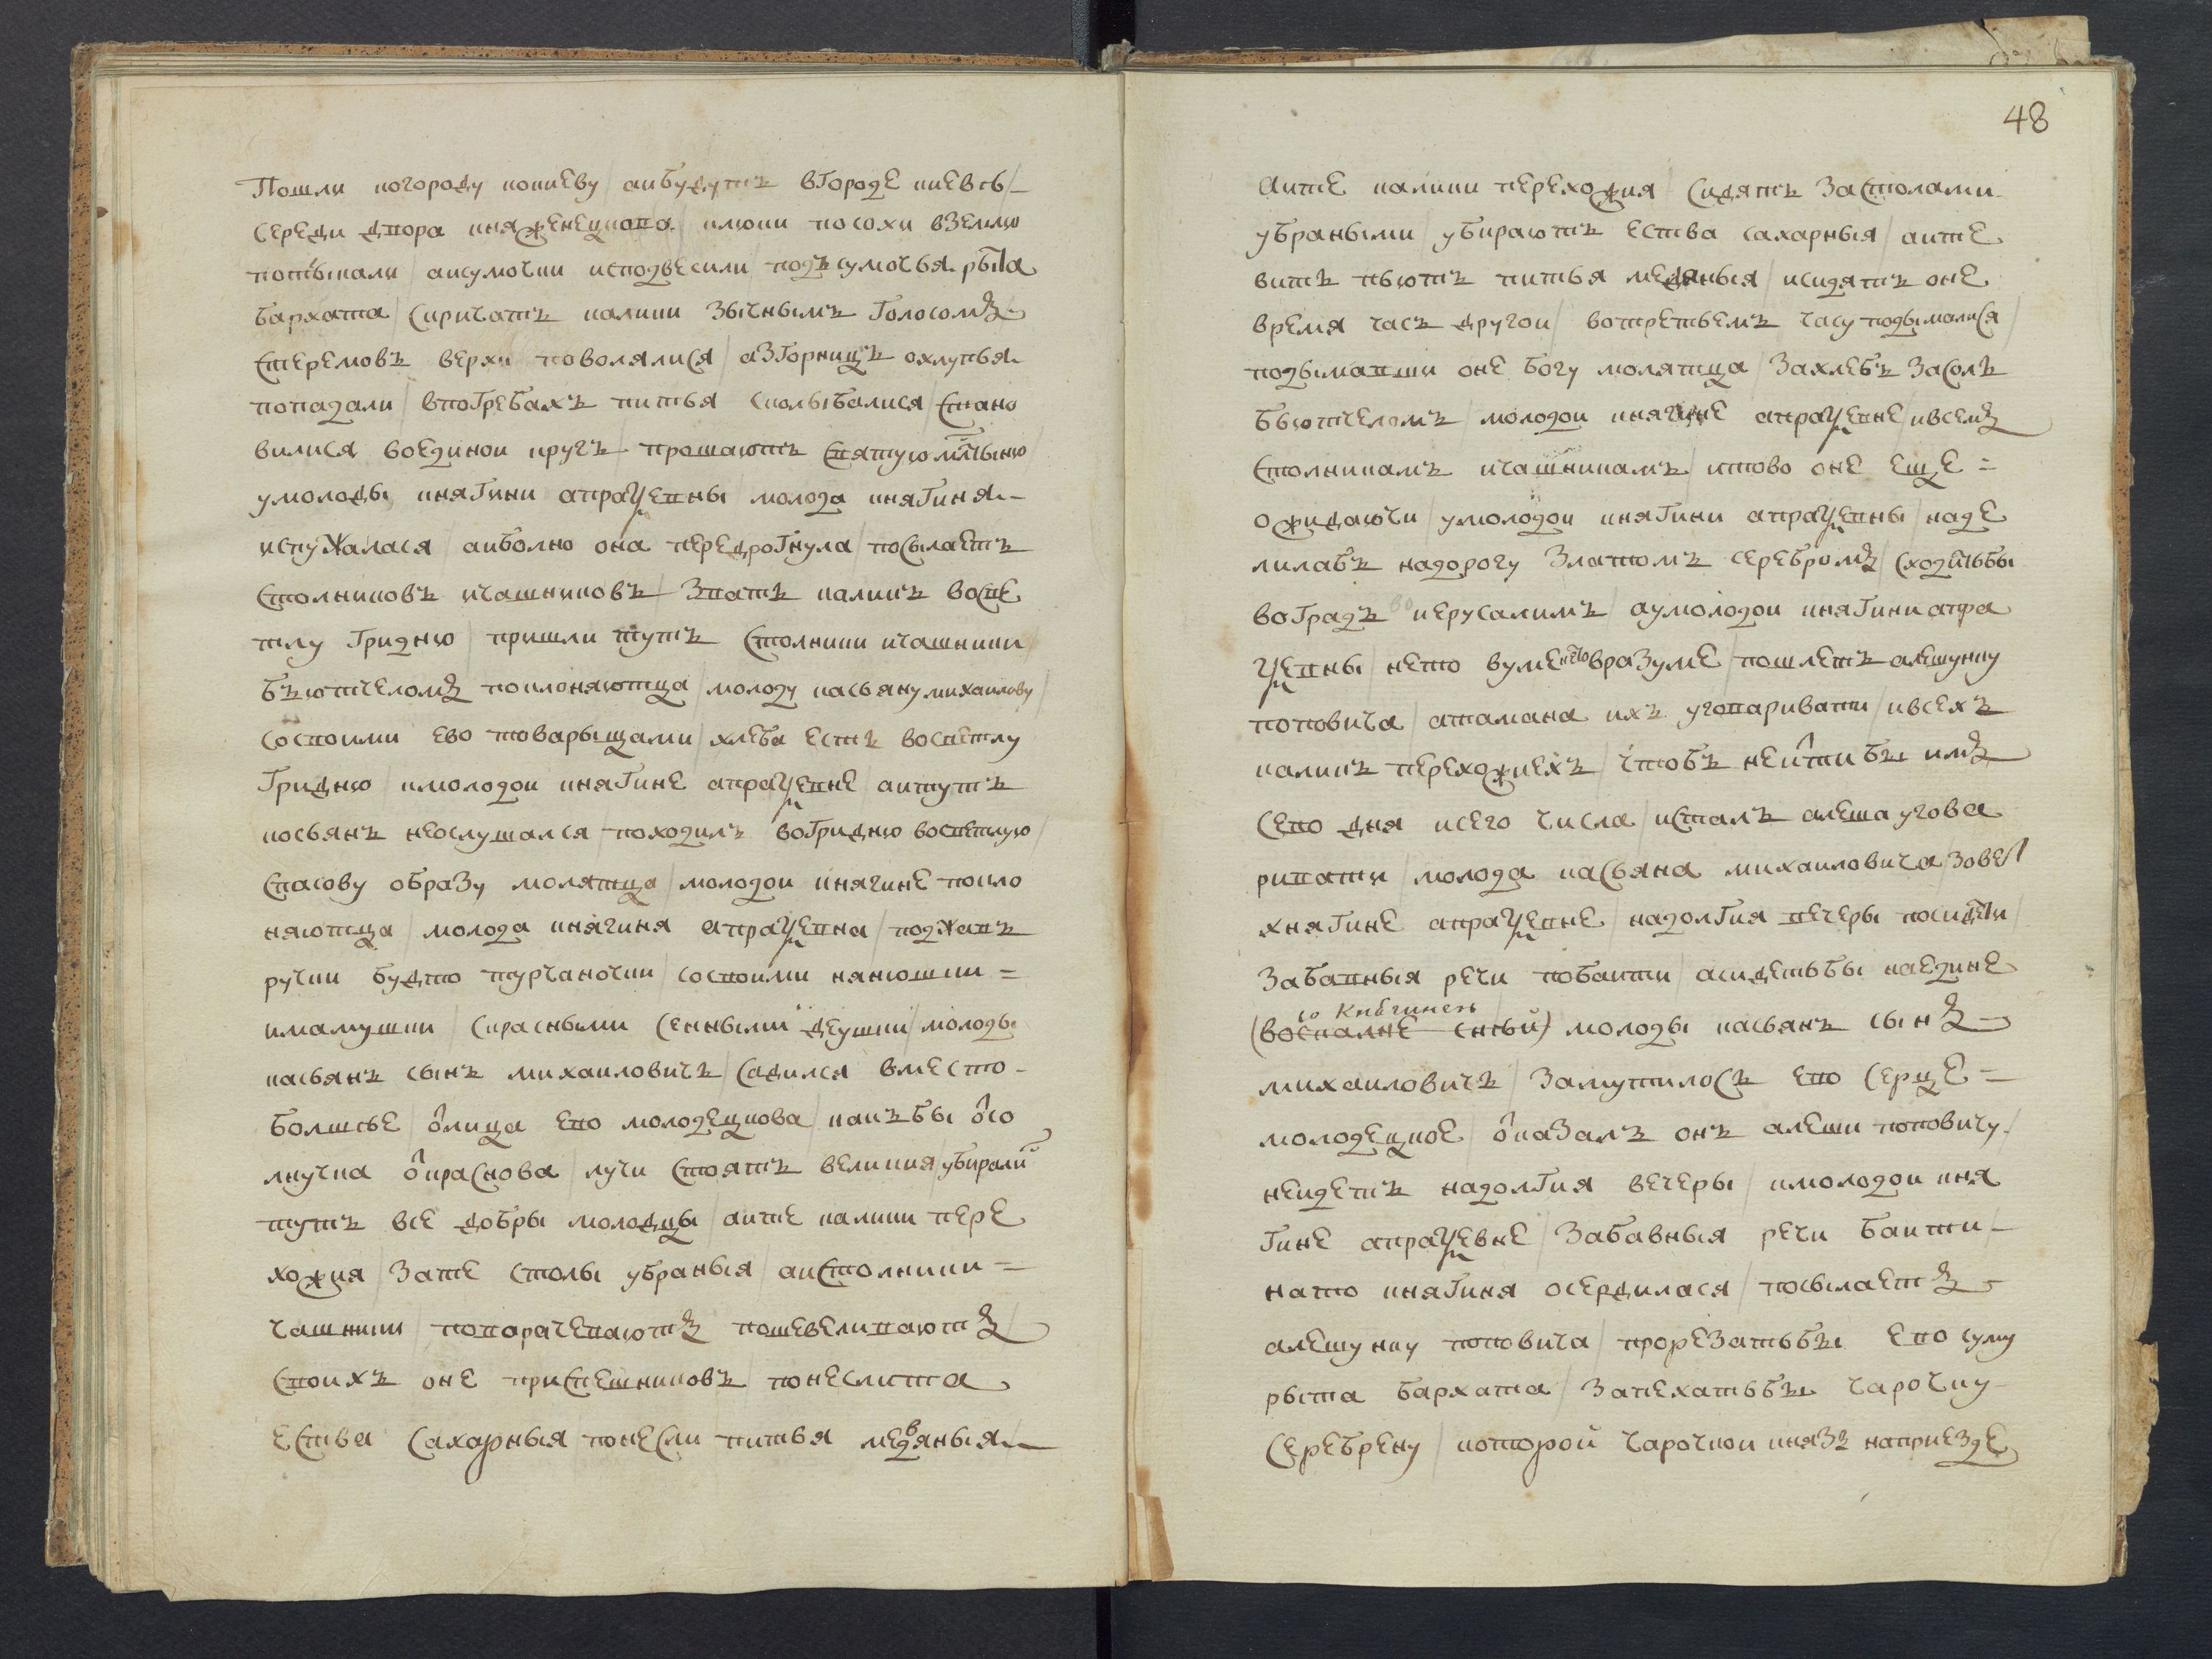 Пошли погороду покиеву / аибудутъ вгороде киевѣ /
середи двора княженецкова / клюки посохи вземлю
потыкали / аисумочки исподвесили / подъсумочья рыта
бархата / скричатъ калики зычнымъ голосомъ
стеремовъ верхи поволялися / азгорницъ охлупья
попадали / впогребахъ питья сколыбалися / стано
вилися воединои кругъ / прошаютъ святую млтыню /
умолоды княгини апраѯевны / молода княгиня
испужалася / аиболно она передрогнула / посылаетъ
столниковъ ичашниковъ / звать каликъ восве
тлу гридню / пришли тутъ столники ичашники /
бьютчеломъ поклоняютца / молоду касьяну михаилову /
сосвоими ево товарыщами / хлеба есть восветлу
гридню / кмолодои княгине апраѯевне / аитутъ
косьянъ неослушался / походилъ вогридню восветлую /
спасову образу молятца / молодои княгине покло
няютца / молода княгиня апраѯевна / поджавъ
ручки будто турчаночки / сосвоими нянюшки =
имамушки / скрасными сенными деушки / молоды
касьянъ сынъ михаиловичь / садился вместо
болшее / ѿлица ево молодецкова / какъбы ѿсо
лнучка ѿкраснова / лучи стоятъ великия / убиралис
тутъ все добры молодцы / аите калики пере
хожия / зате столы убраныя / аистолники =
чашники / поварачеваютъ пошевеливаютъ /
своихъ оне приспешниковъ / понеслита
ества сахарныя понесли питья медвяныя
48
аите калики перехожия / сидятъ застолами
убраными / убираютъ ества сахарныя / аите
вить пьютъ питья медяныя / исидятъ оне
время часъ другои / вотретьемъ часу подымалися /
подымавши оне богу молятца / захлебъ засоль
бьютчеломъ / молодои княгине апраѯевне / ивсемъ
столникамъ ичашникамъ / итово оне еще =
ожидаючи / умолодои княгини апраѯевны / наде
лилабъ надорогу златомъ серебромъ / сходитьбы
воградъ во иерусалимъ / аумолодои княгини апра
ѯевны / нето вуме нето вразуме / пошлетъ алешунку
поповича / атамана ихъ уговаривати / ивсехъ
каликъ перехожиехъ / чтобъ неитибы имъ
сево дня исего числа / исталъ алеша угова
ривати / молода касьяна михаиловича / зовет
хнягине апраѯевне / надолгия вечеры посидети /
забавныя речи побаити / асидетьбы наедине
со Княгинею
(воспалне снеи) молоды касьянъ сынъ
михаиловичь / замутилось ево серце =
молодецкое / ѿказалъ онъ алеши поповичу /
неидетъ надолгия вечеры / кмолодои кня
гине апраѯевне / забавныя речи баити
нато княгиня осердилася / посылаетъ
алешунку поповича / прорезатьбы ево суму
рыта бархата / запехатьбы чарочку
серебрену / которой чарочкои князь наприезде